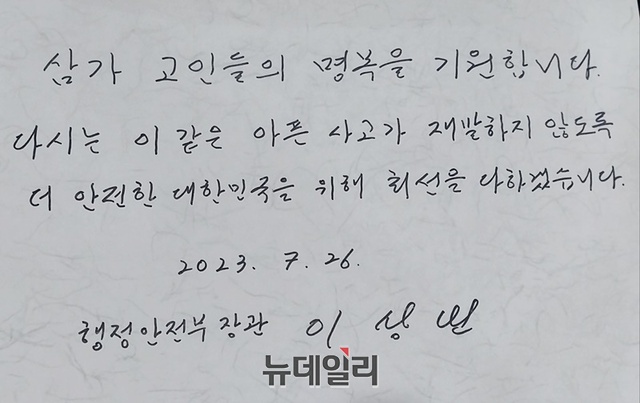 삼가 고인들의 명복을 기원합니다.
다시는 이 같은 아픈 사고가 재발하지 않도록
더 안전한 대한민국을 위해 최선을 다하겠습니다.
2023. 7. 26.
행정안전부장관 이상민
뉴데일리